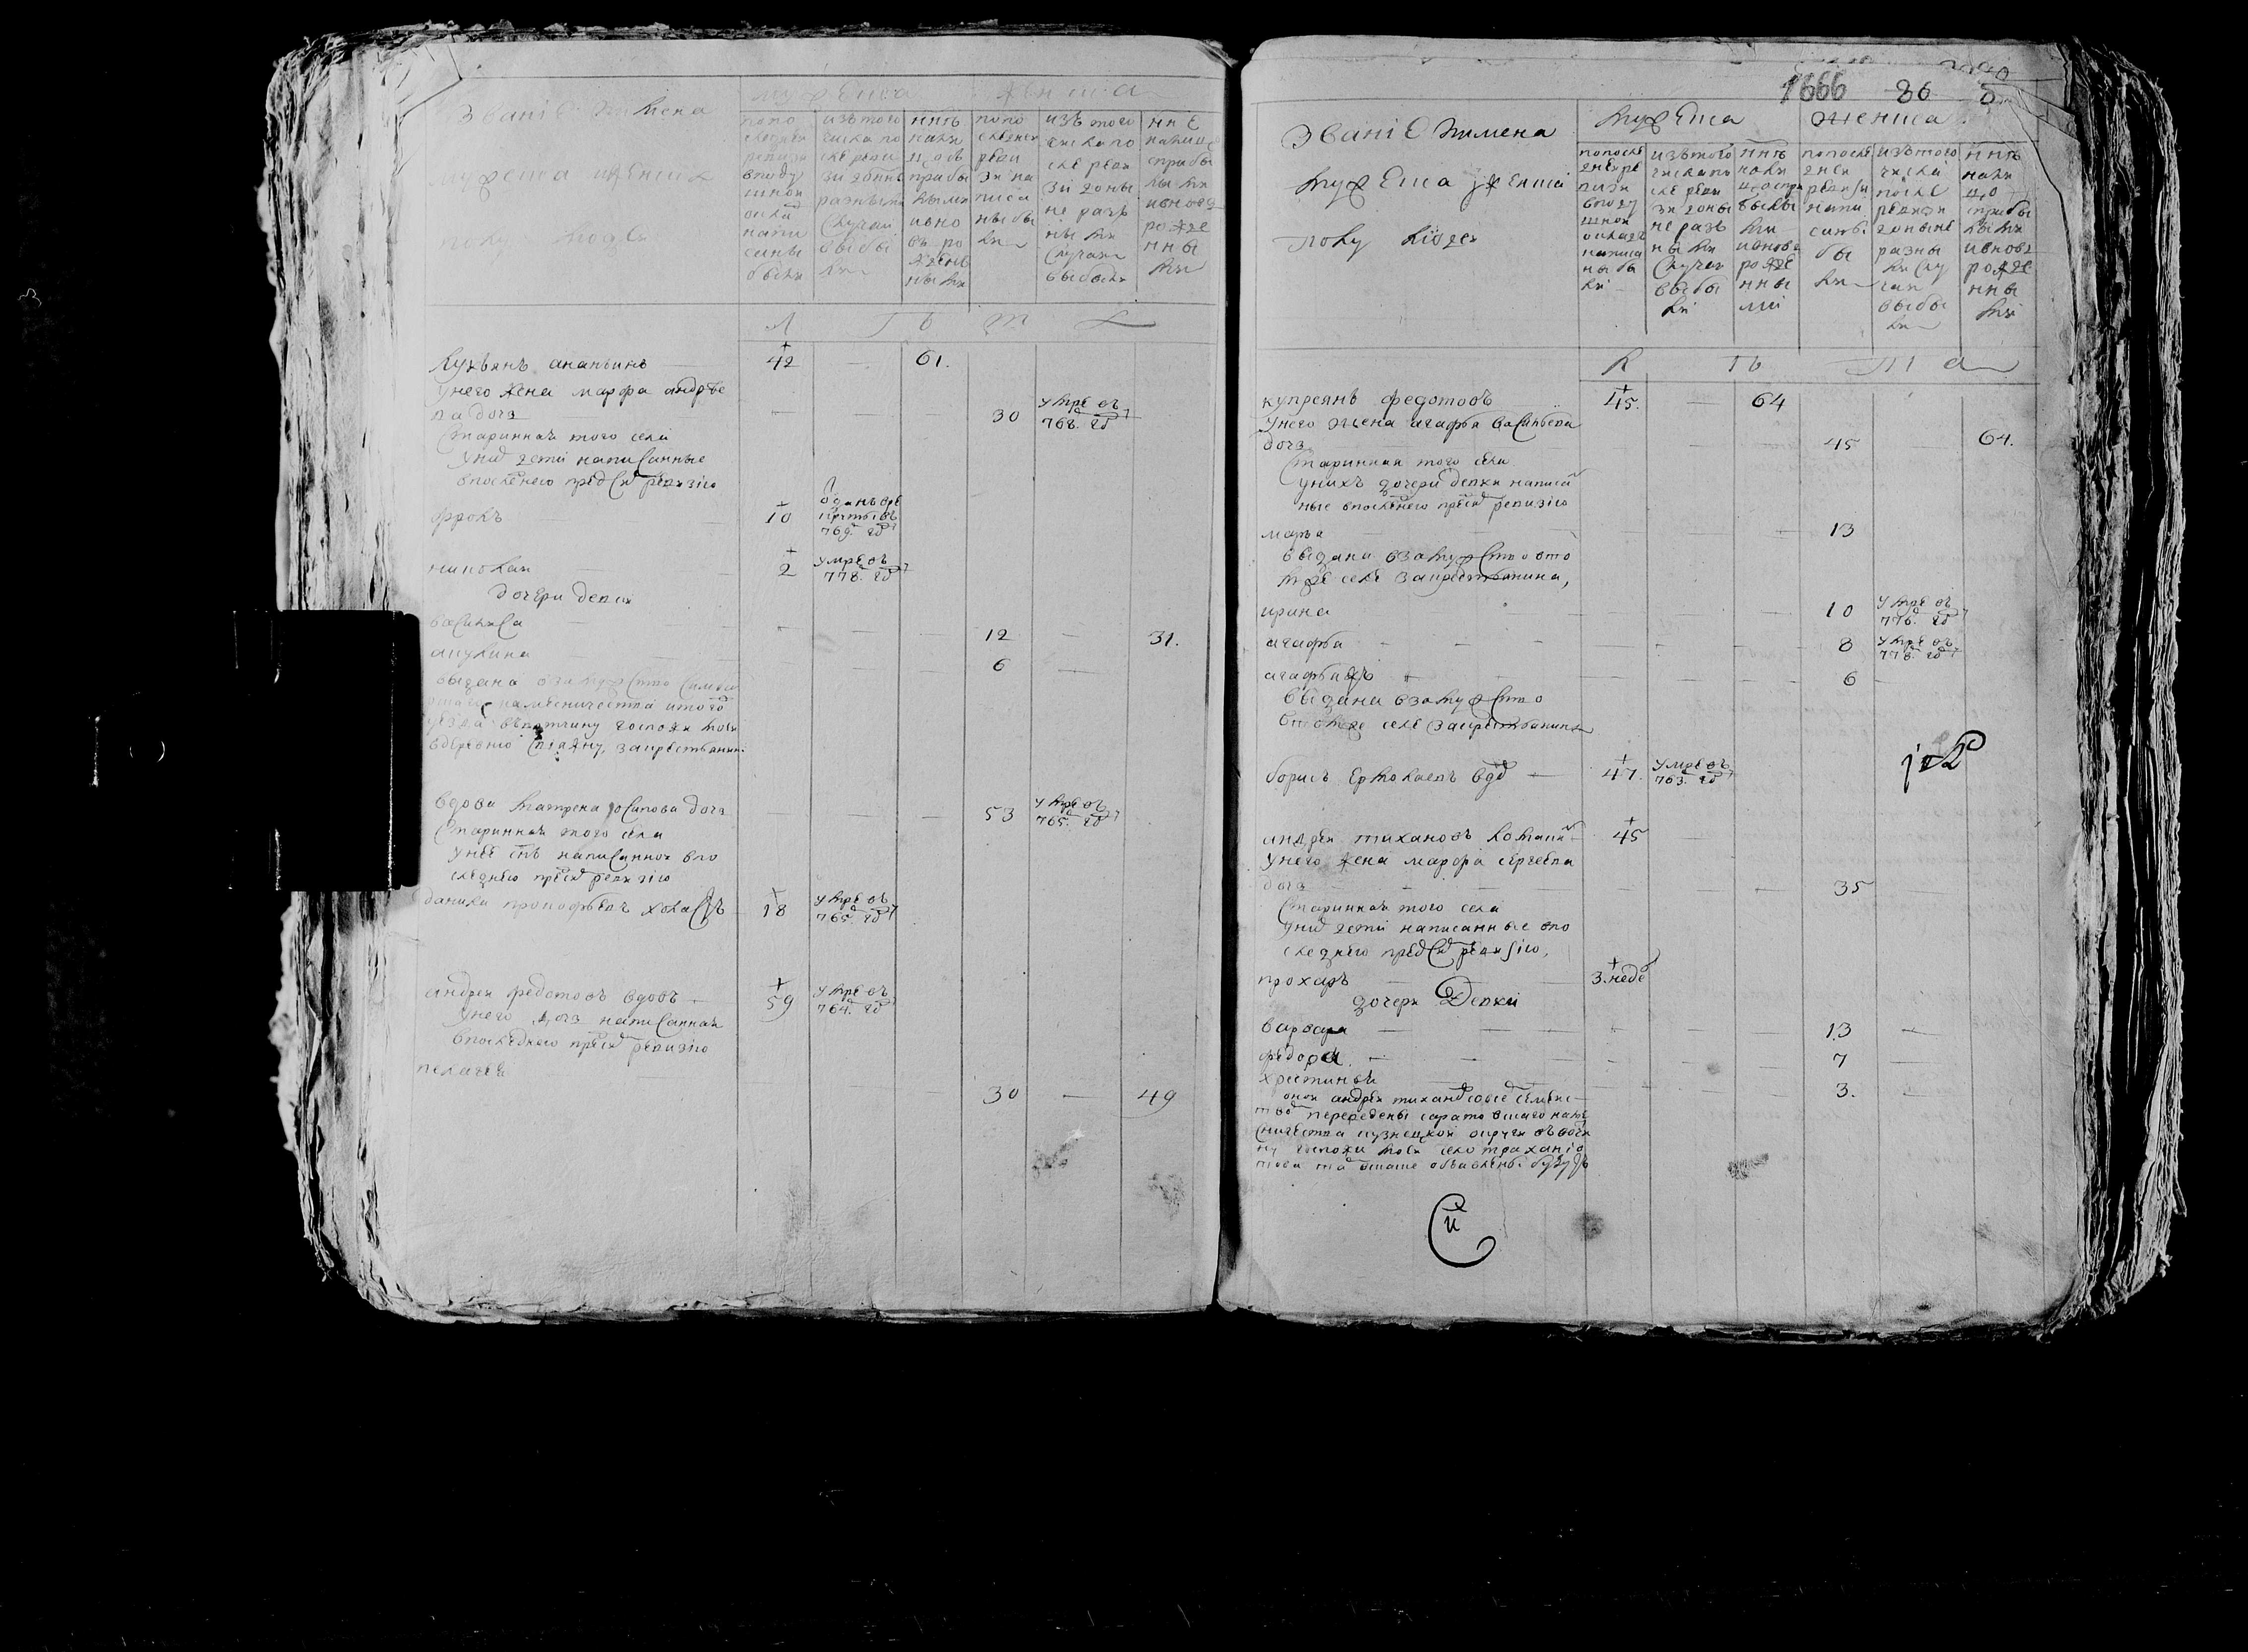 званiе имена
мужеска иженска
полу людеи
мужеска женска
попо
следнеи
ревизи
вподу
шнои
окла
напи
саны
были
изътого
числа по
сле реви
зи доны
разными
случаи
выбы
ли
ннѣ
нали
цо съ
прибы
лыми
ивно
въ ро
жден
ными
попо
следнеи
реви
зи на
писа
ны бы
ли
изъ того
числа по
сле реви
зи доны
не разъ
ны ми
случаи
выбыли
нне
налицо
сприбы
лы ми
ивновъ
рожде
нны
ми
лѣта
лукьянъ ананьинъ 42 — 61.
унего жена марфа андрѣе
ва доч 30 умре въ 768. год
Стариннаѧ того села
уних дети написанные
впоследнею пред сию ревизiю
фролъ 10 въ 769. год
николаи 2 умре въ 778. год
дочери девки
василиса 12 — 31.
акулина 6 —
выдана взамужство симбир
намесничества итого
уезда ввотчину госпожи моеи
вдеревню закрестьянина
вдова матрена осипова доч 53 умре въ 765. год
Стариннаѧ того села
унее снъ написаннои впо
следнею пред ревизiю
данила прокофьевъ холостъ 18 умре въ 765. год
андреи федотовъ вдовъ 59 умре въ 764. год
унего доч написаннаѧ
впоследнею пред ревизiю
пелагеѧ 30 — 49
1666 86
званiе имена
мужеска iженска
полу людеи
мужеска женска
попосле
днеи ре
визи
вподу
шнои
окладъ
написа
ны бы
ли
изътого
числа по
сле реви
зи доны
не разъ
ны ми
случаи
выбы
ли
ннѣ
нали
цо спри
былы
ми
ивновъ
рожде
нны
ми
попосле
днеи
ревизи
напи
саны
бы
ли
изътого
числа
после
ревизи
доныне
разны
ми слу
чаи
выбы
ли
ннѣ
нали
цо
сприбы
лыми
ивновъ
рожде
нны
ми
лѣта
купреянъ федотовъ 45. — 64
унего жена агафья васильева
доч 45 — 64.
Стариннаѧ того села
унихъ дочери девки написан
ные впоследнею пред ревизiю
марья 13
выдана взамужство втo
мже селе закрестьянина,
ирина 10 умре въ 776. год
агафья 8 умре въ 778. год
агафья жъ 6 —
выдана взамужство
втомже селе закрестьянина
борисъ ермолаевъ вдов 47. умре въ 763. год
андреи тихановъ 45
унего жена марфа сергеева
доч 35
Стариннаѧ того села
уних дети написанные впо
следнею пред сию ревизiю,
прохоръ 3. неде
дочери девки
варвара 13 —
федора. 7 —
христинья 3.
онои андреи тиханов сѡ всемъ семеис
твом переведены саратовшаго наме
сничества кузнецкои округи въ вотчи
ну госпожи моеи село
объявлены будутъ